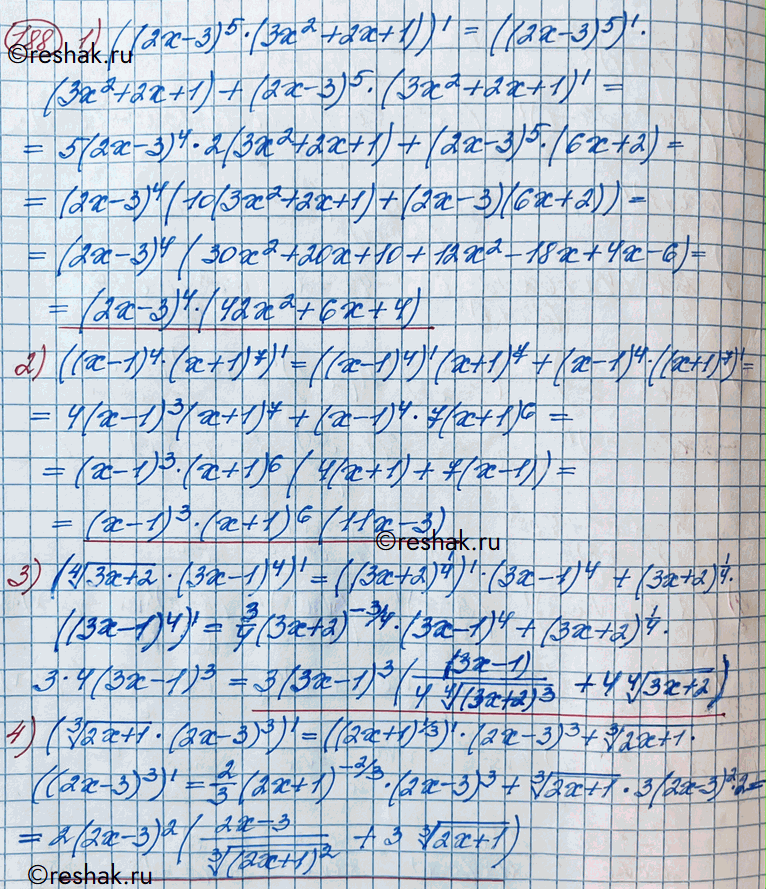 188 1) ((2x-3)⁵·(3x²+2x+1))' = ((2x-3)⁵)'·
©reshak.ru
(3x²+2x+1)+(2x-3)⁵·(3x²+2x+1)' =
= 5(2x-3)⁴·2(3x²+2x+1)+(2x-3)⁵·(6x+2) =
= (2x-3)⁴(10(3x²+2x+1)+(2x-3)(6x+2)) =
= (2x-3)⁴(30x²+20x+10+12x²-18x+4x-6) =
= (2x-3)⁴·(42x²+6x+4)
2) ((x-1)⁴·(x+1)⁷)' = ((x-1)⁴)'(x+1)⁷+(x-1)⁴·((x+1)⁷)' =
= 4(x-1)³(x+1)⁷+(x-1)⁴·7(x+1)⁶ =
= (x-1)³·(x+1)⁶(4(x+1)+7(x-1)) =
= (x-1)³·(x+1)⁶(11x-3)
©reshak.ru
3) (∜(3x+2)·(3x-1)⁴)' = ((3x+2)^(1/4))'·(3x-1)⁴ + (3x+2)^(1/4)·
((3x-1)⁴)' = 3/4(3x+2)^(-3/4)·(3x-1)⁴+(3x+2)^(1/4)·
3·4(3x-1)³ = 3(3x-1)³((3x-1)/(4∜((3x+2)³)) + 4∜(3x+2))
4) (∛(2x+1)·(2x-3)³)' = ((2x+1)^(1/3))'·(2x-3)³+∛(2x+1)·
((2x-3)³)' = 2/3(2x+1)^(-2/3)·(2x-3)³+∛(2x+1)·3(2x-3)²·2 =
= 2(2x-3)²((2x-3)/(∛((2x+1)²)) + 3∛(2x+1))
©reshak.ru